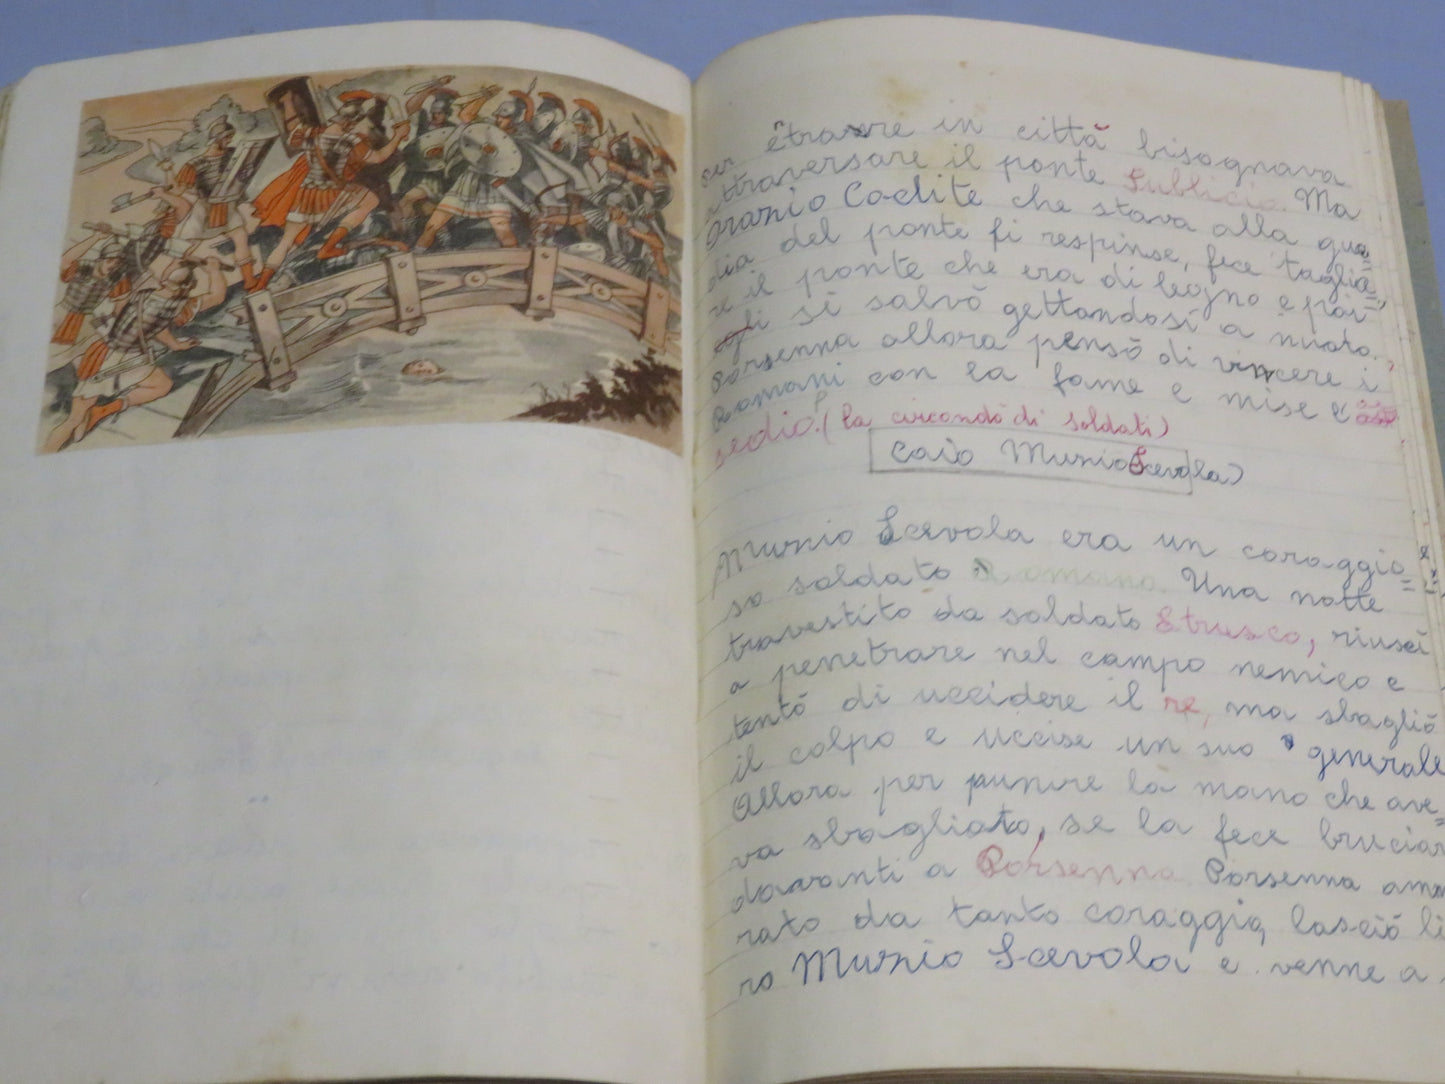 per entrare in città bisognava
attraversare il ponte Sublicio. Ma
Orazio Coclite che stava alla guar=
dia del ponte li respinse, fece taglia=
re il ponte che era di legno e poi
si salvò gettandosi a nuoto.
Porsenna allora pensò di vincere i
Romani con la fame e mise
sedio. (la circondò di soldati)
Caio Munio Scevola)
Munio Scevola era un coraggio=
so soldato Romano. Una notte
travestito da soldato Etrusco, riuscì
a penetrare nel campo nemico e
tentò di uccidere il re, ma sbagliò
il colpo e uccise un suo generale
Allora per punire la mano che ave=
va sbagliato, se la fece bruciar
davanti a Porsenna Porsenna amm
rato da tanto coraggio, lasciò li
ro Munio Scevola e venne a